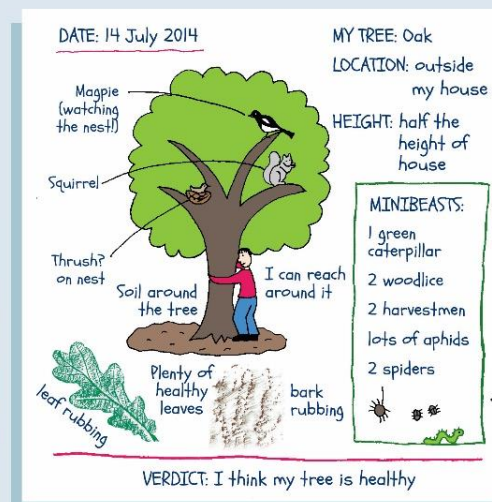 DATE: 14 July 2014
MY TREE: Oak
LOCATION: outside
my house
HEIGHT: half the
height of
house
Magpie
(watching
the nest!)
Squirrel
Thrush?
on nest
I can reach
around it
Soil around
the tree
MINIBEASTS:
1 green
caterpillar
2 woodlice
2 harvestmen
lots of aphids
2 spiders
leaf rubbing
Plenty of
healthy
leaves
bark
rubbing
VERDICT: I think my tree is healthy